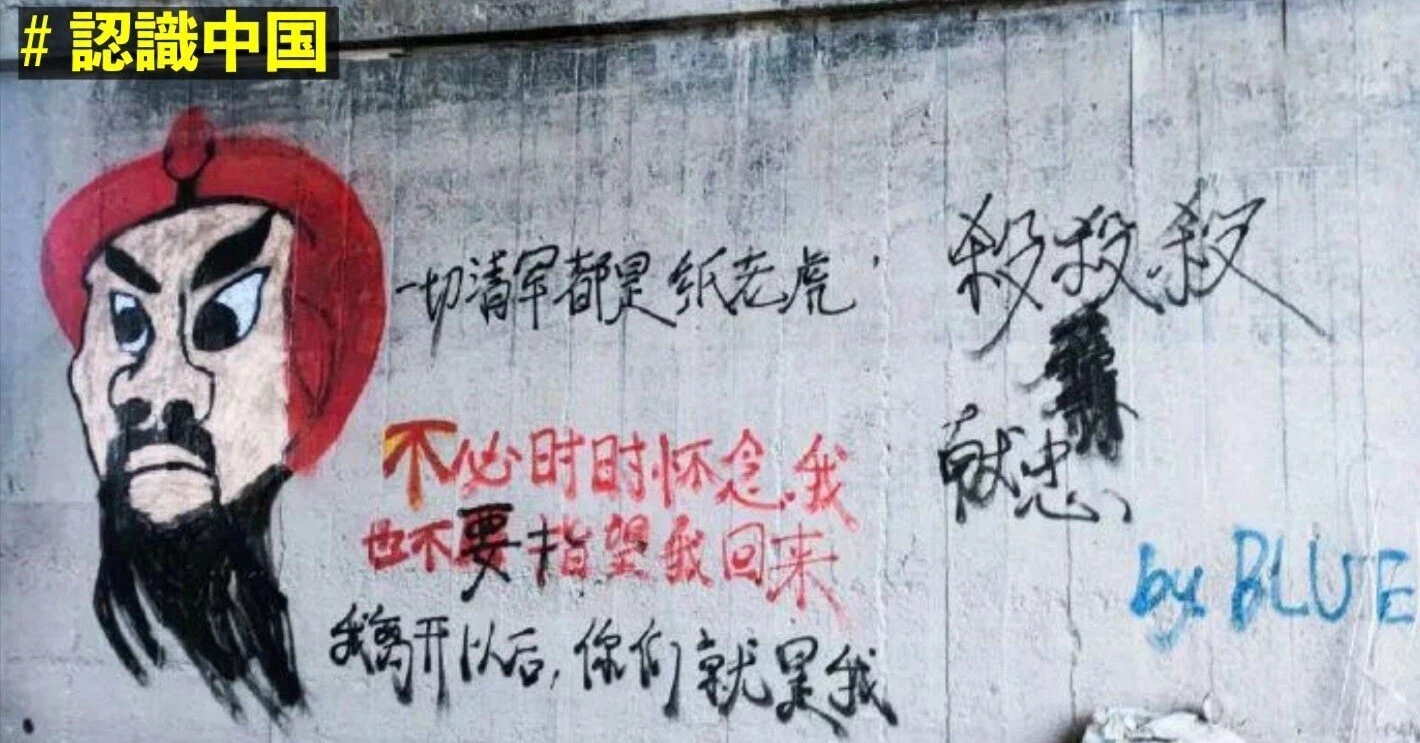 # 認識中国
一切清军都是纸老虎，
殺殺殺
不必时时怀念我
也不要指望我回来
献忠、
我离开以后，你们就是我
by BLUE